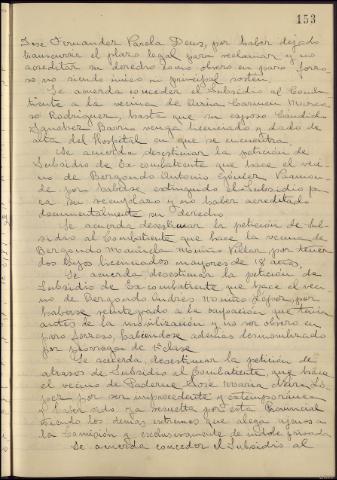 153
José Fernandez Parola Deus, por haber dejado
transcurrir el plazo legal para reclamar y no
acreditar su derecho como obrero en paro forzo-
so no siendo único ni principal sostén.
Se acuerda conceder el Subsidio al Comba-
tiente a la vecina de Carmen
Rodriguez, hasta que su esposo Cándido
Sanchez venga licenciado y dado de
alta del Hospital en que se encuentra.
Se acuerda desestimar la petición de
Subsidio de Ex-combatiente que hace el veci-
no de Bergondo Antonio
de por haberse extinguido el Subsidio pa-
ra su reemplazo y no haber acreditado
documentalmente su derecho.
Se acuerda desestimar la petición de Sub-
sidio al Combatiente que hace la vecina de
Bergondo Manuela Villar por tener
dos hijos licenciados mayores de 18 años.
Se acuerda desestimar la petición de
Subsidio de Ex-combatiente que hace el veci-
no de Bergondo Andrés López, por
haberse reintegrado a la ocupación que tenía
antes de la movilización y no ser obrero en
paro forzoso, habiendose además desmovilizado
por prórroga de 1ª clase
Se acuerda desestimar la petición de
atrasos de Subsidio al Combatiente, que hace
el vecino de Paderne José Maria Ló-
pez por ser improcedente y extemporánea
y haber sido ya resuelta por esta Provincial
siendo los demás extremos que alega ajenos a
la Comisión y exclusivamente de indole privada
Se acuerda conceder el Subsidio al